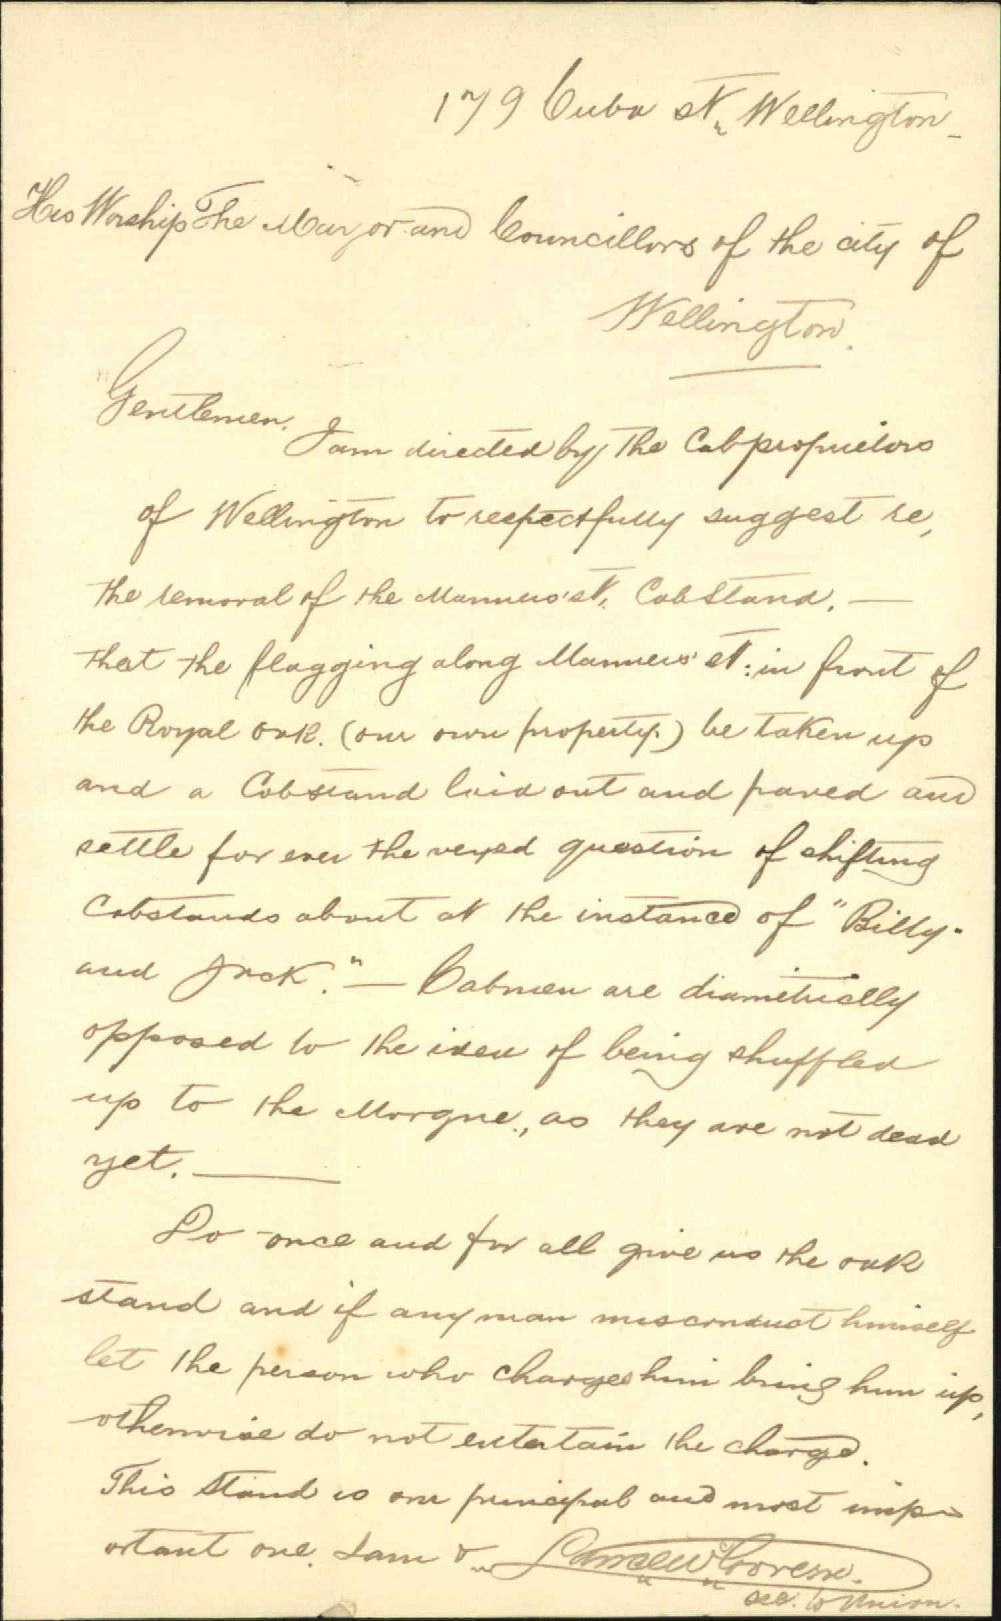 179 Cuba St, Wellington
His Worship The Mayor and Councillors of the city of
Wellington.
Gentlemen.
I am directed by the Cabproprietors
of Wellington to respectfully suggest re,
the removal of the Manners' st, Cab Stand. —
that the flagging along Manners' st: in front of
the Royal Oak. (our own property.) be taken up
and a Cabstand laid out and paved and
settle for ever the vexed question of shifting
Cabstands about at the instance of "Billy-
and Jack". — Cabmen are diametrically
opposed to the idea of being shuffled
up to the Morgue., as they are not dead
yet. —
Do once and for all give us the oak
stand and if any man misconduct himself
let the person who charges him bring him up,
otherwise do not entertain the charge.
This Stand is our principal and most imp-
ortant one. I am &
sec. to Union.